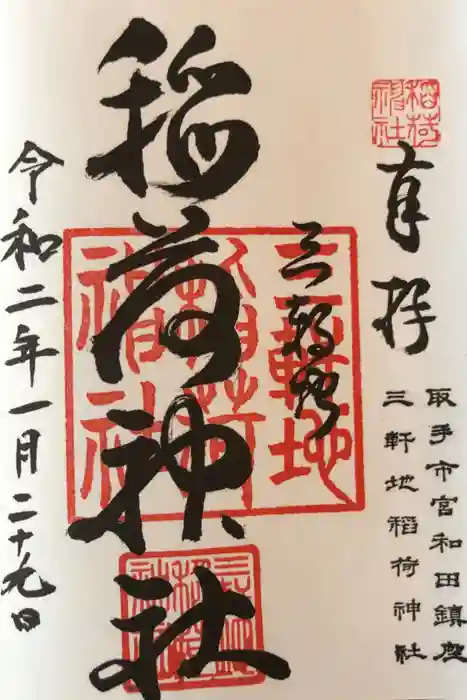 奉拝
取手市宮和田鎮座
三軒地稲荷神社
三軒地
稲荷神社
令和二年一月二十九日
三軒地
稲荷
神社
稲荷
神社